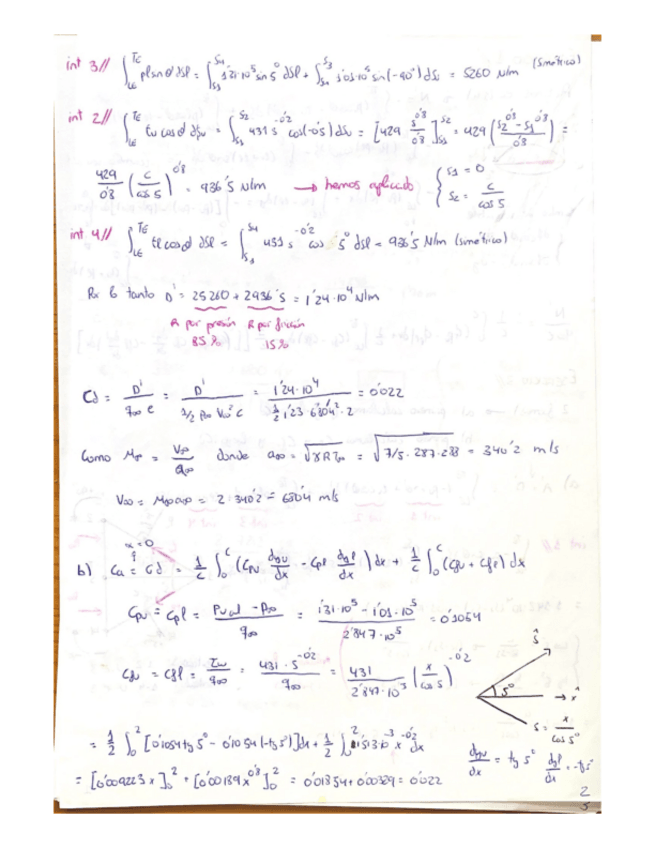 int 3// ∫_LE^TE pl sen θ dSl = ∫_S1^S4 1'31·10⁵ sen 5° dSl + ∫_S4^S3 1'01·10⁵ sen(-90°) dSl = 5260 N/m (simétrico)
int 2// ∫_LE^TE τu cos θ dSu = ∫_S1^S2 431 s^-0'2 cos(-5) dSu = [429 s^0'8/0'8]_S1^S2 = 429 (S2^0'8 - S1^0'8 / 0'8) =
429/0'8 (c/cos 5)^0'8 = 936'5 N/m → hemos aplicado { S1 = 0
S2 = c/cos 5
int 4// ∫_LE^TE τl cos θ dSl = ∫_S1^S4 431 s^-0'2 cos 5° dSl = 936'5 N/m (simétrico)
Por lo tanto D' = 2·5260 + 2·936'5 = 1'24·10⁴ N/m
R por presión R por fricción
85% 15%
Cd = D'/q∞ c = D'/(1/2 ρ∞ V∞² c) = 1'24·10⁴/(1/2 1'23·680'4²·2) = 0'022
Como M∞ = V∞/a∞ donde a∞ = √(γRT∞) = √(7/5·287·288) = 340'2 m/s
V∞ = M∞a∞ = 2·340'2 = 680'4 m/s
α=0
b) Ca = Cd = 1/c ∫_0^c (Cpu dyu/dx - Cpl dyl/dx) dx + 1/c ∫_0^c (Cfu + Cfl) dx
Cpu = Cpl = (Pu,l - P∞)/q∞ = (1'31·10⁵ - 1'01·10⁵)/2'847·10⁵ = 0'1054
Cfu = Cfl = τw/q∞ = 431·s^-0'2/q∞ = 431/2'847·10⁵ (x/cos 5)^-0'2
ŝ
5° → x̂
s = x/cos 5°
= 1/2 ∫_0^2 [0'1054 tg 5° - 0'1054 (-tg 5°)] dx + 1/2 ∫_0^2 1'513·10^-3 x^-0'2 dx
dyu/dx = tg 5° dyl/dx = -tg 5°
= [0'00922 x]_0^2 + [0'00189 x^0'8]_0^2 = 0'01854 + 0'00329 = 0'022
2
5